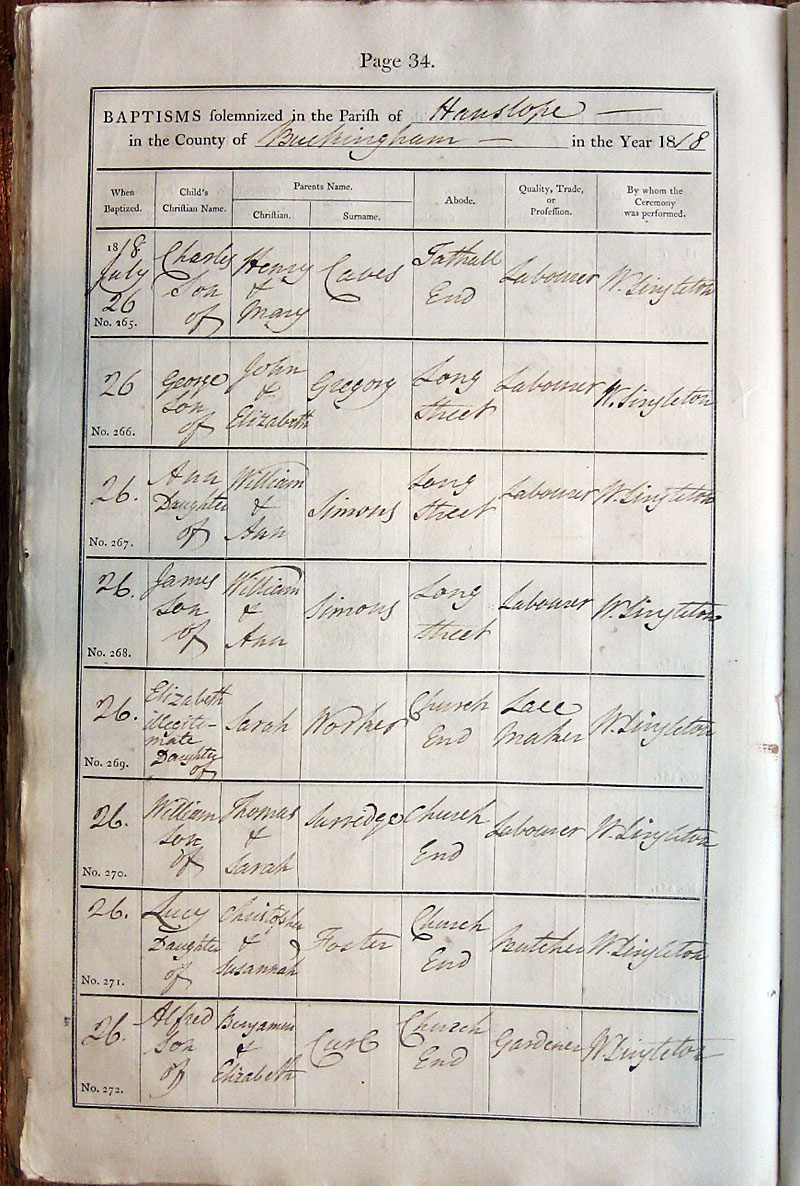 Page 34.
BAPTISMS solemnized in the Parish of Hanslope —
in the County of Buckingham — in the Year 1818
When Baptized.
Child's Christian Name.
Parents Name.
Christian.
Surname.
Abode.
Quality, Trade, or Profession.
By whom the Ceremony was performed.
1818 July 26 No. 265.
Charles Son of
Henry & Mary
Caves
Tathall End
Labourer
W. Singleton
26 No. 266.
George Son of
John & Elizabeth
Gregory
Long Street
Labourer
W. Singleton
26. No. 267.
Ann Daughter of
William & Ann
Simons
Long Street
Labourer
W. Singleton
26. No. 268.
James Son of
William & Ann
Simons
Long Street
Labourer
W. Singleton
26. No. 269.
Elizabeth illegitimate Daughter of
Sarah
Worker
Church End
Lace Maker
W. Singleton
26. No. 270.
William Son of
Thomas & Sarah
Surridge
Church End
Labourer
W. Singleton
26. No. 271.
Lucy Daughter of
Christopher & Susannah
Foster
Church End
Butcher
W. Singleton
26. No. 272.
Alfred Son of
Benjamin & Elizabeth
Church End
Gardener
W. Singleton